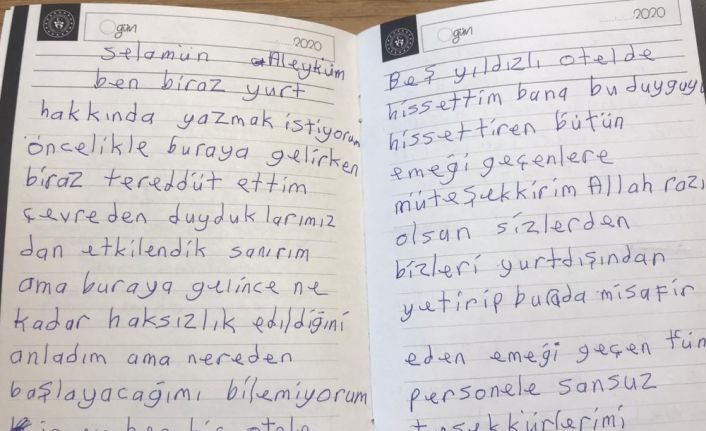 gün
2020
selamün Aleyküm
ben biraz yurt
hakkında yazmak istiyorum
öncelikle buraya gelirken
biraz tereddüt ettim
çevreden duyduklarımız
dan etkilendik sanırım
ama buraya gelince ne
kadar haksızlık edildiğini
anladım ama nereden
başlayacağımı bilemiyorum
gün
2020
Beş yıldızlı otelde
hissettim bana bu duyguyu
hissettiren bütün
emeği geçenlere
müteşekkirim Allah razı
olsun sizlerden
bizleri yurtdışından
yetirip burada misafir
eden emeği geçen tüm
personele sansuz
teşekkürlerimi